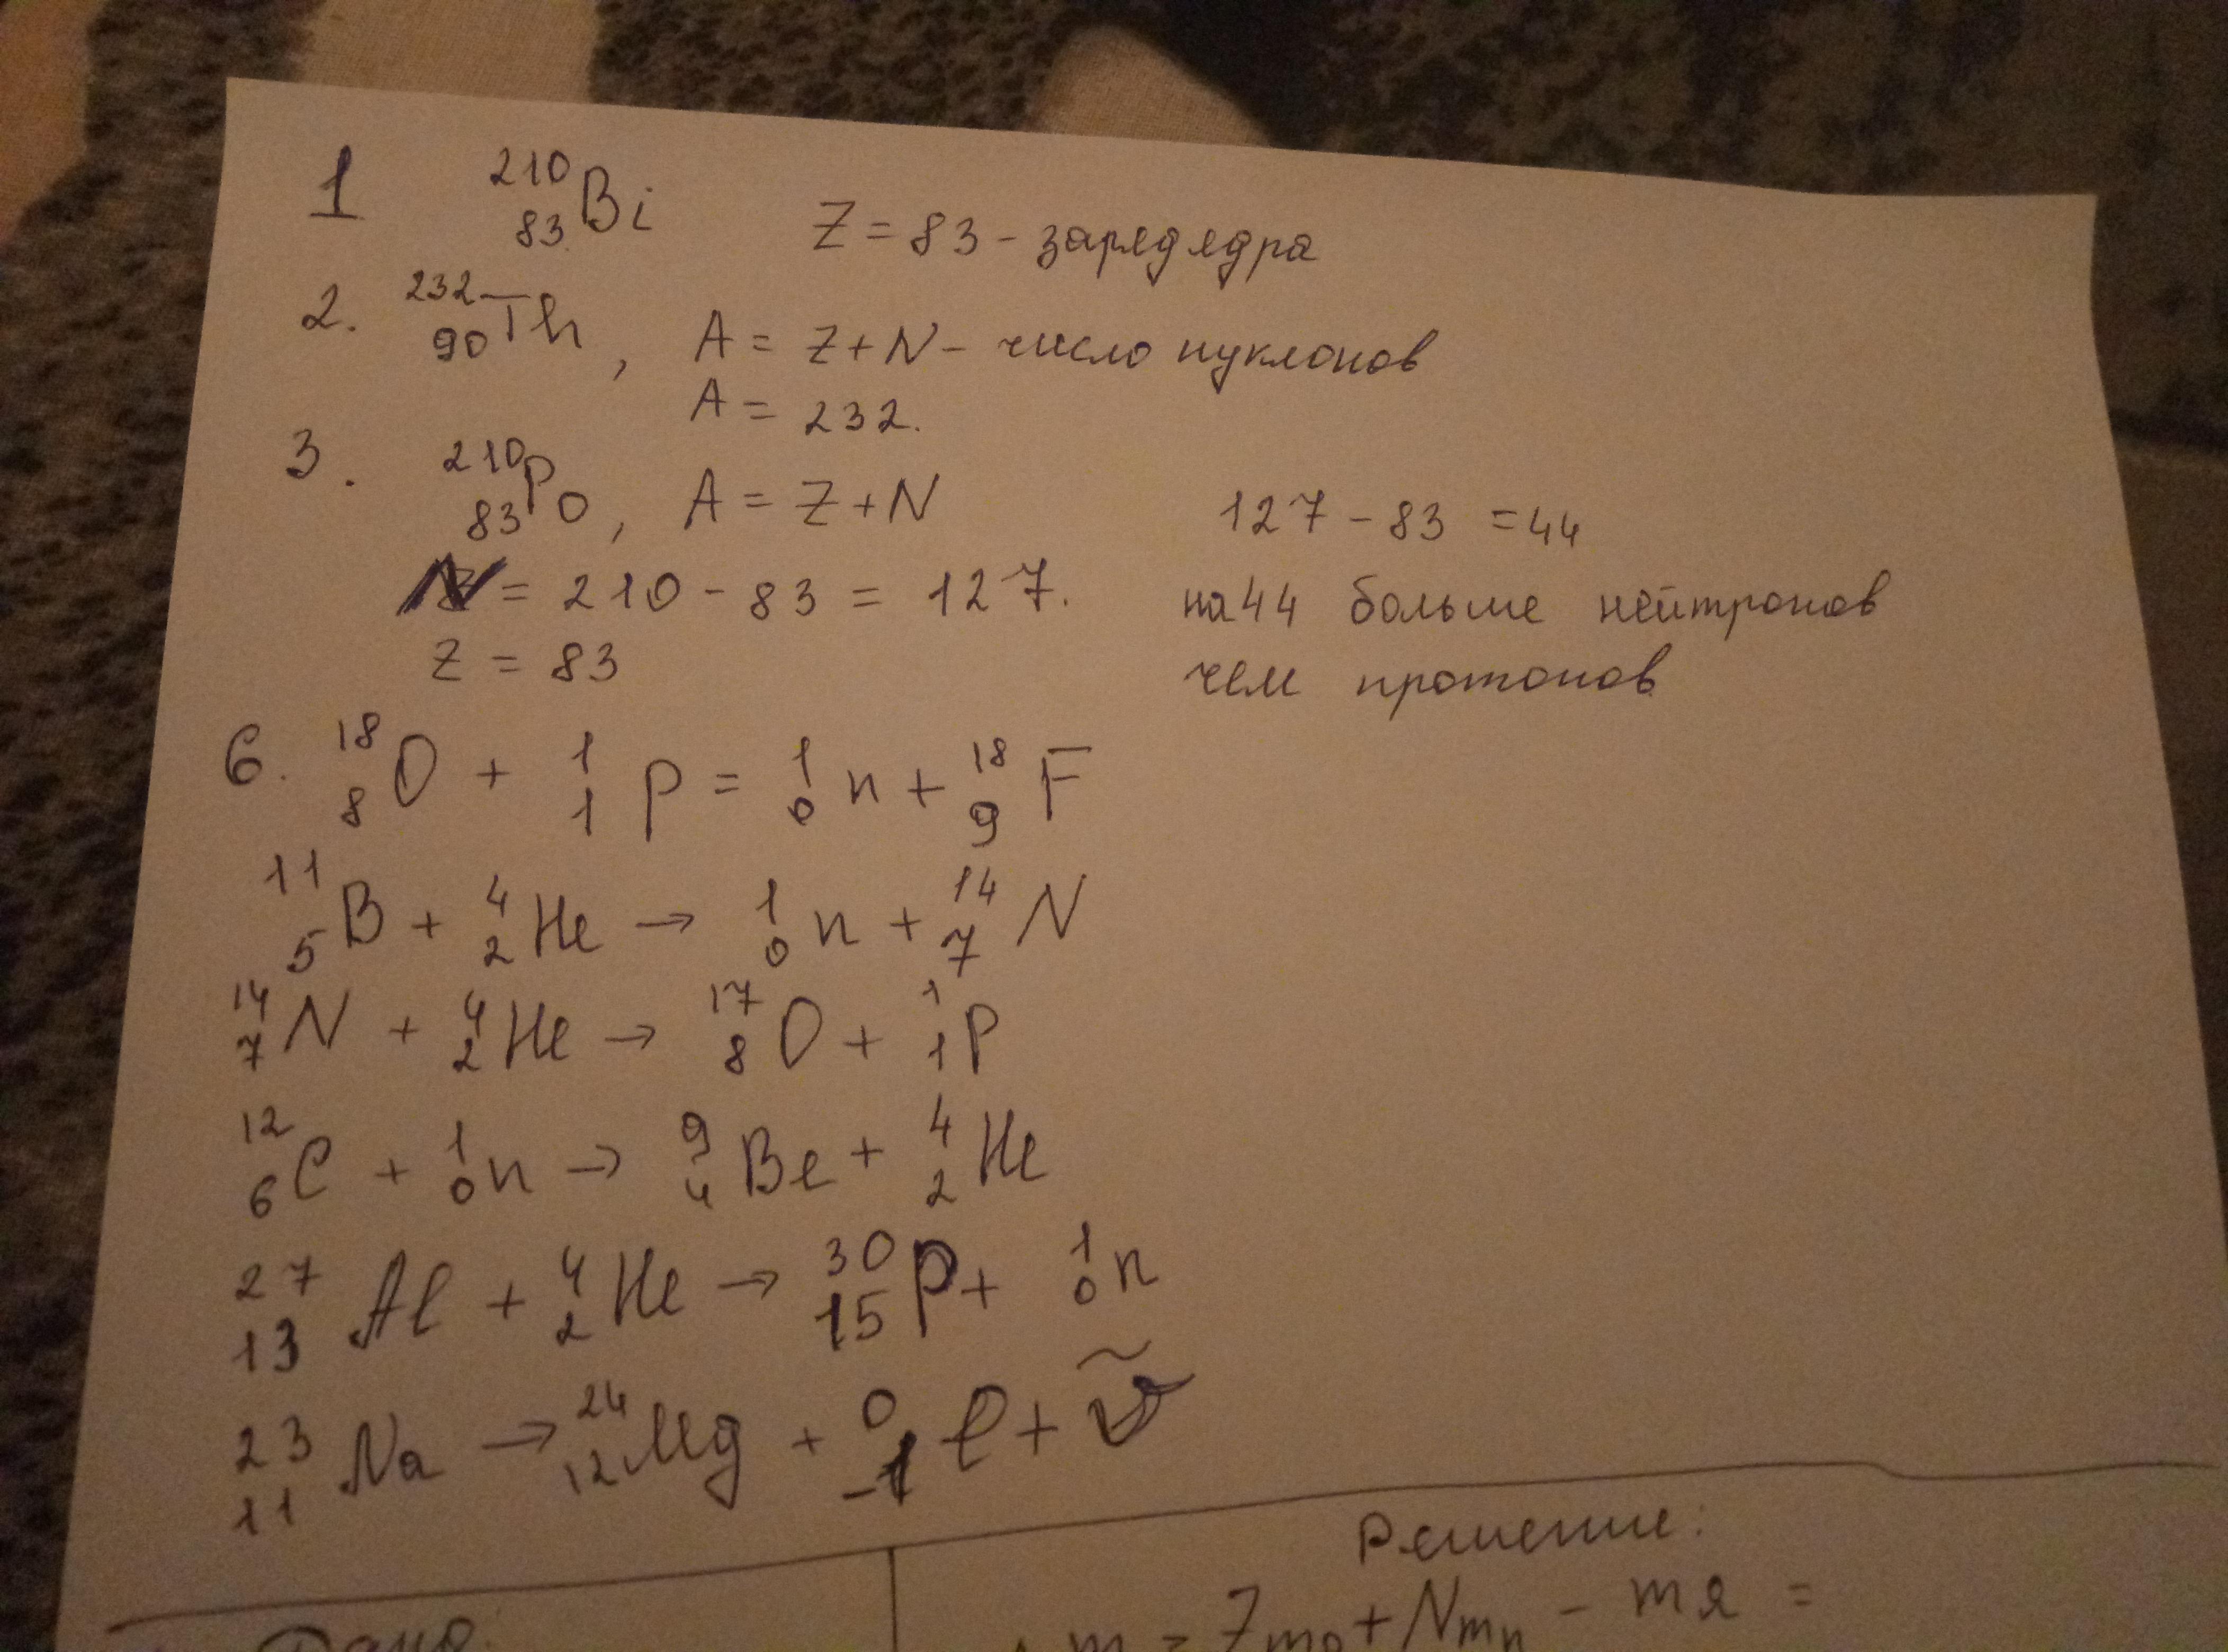 1 ²¹⁰₈₃Bi Z = 83 - заряд ядра
2. ²³²₉₀Th, A = Z + N - число нуклонов
A = 232.
3. ²¹⁰₈₃Po, A = Z + N
N = 210 - 83 = 127.
Z = 83
127 - 83 = 44
на 44 больше нейтронов
чем протонов
6. ¹⁸₈O + ¹₁p = ¹₀n + ¹⁸₉F
¹¹₅B + ⁴₂He → ¹₀n + ¹⁴₇N
¹⁴₇N + ⁴₂He → ¹⁷₈O + ¹₁P
¹²₆C + ¹₀n → ⁹₄Be + ⁴₂He
²⁷₁₃Al + ⁴₂He → ³⁰₁₅P + ¹₀n
²³₁₁Na → ²⁴₁₂Mg + ⁰₋₁e + ṽ
Дано:
Решение:
m = Zmp + Nmn - mя =